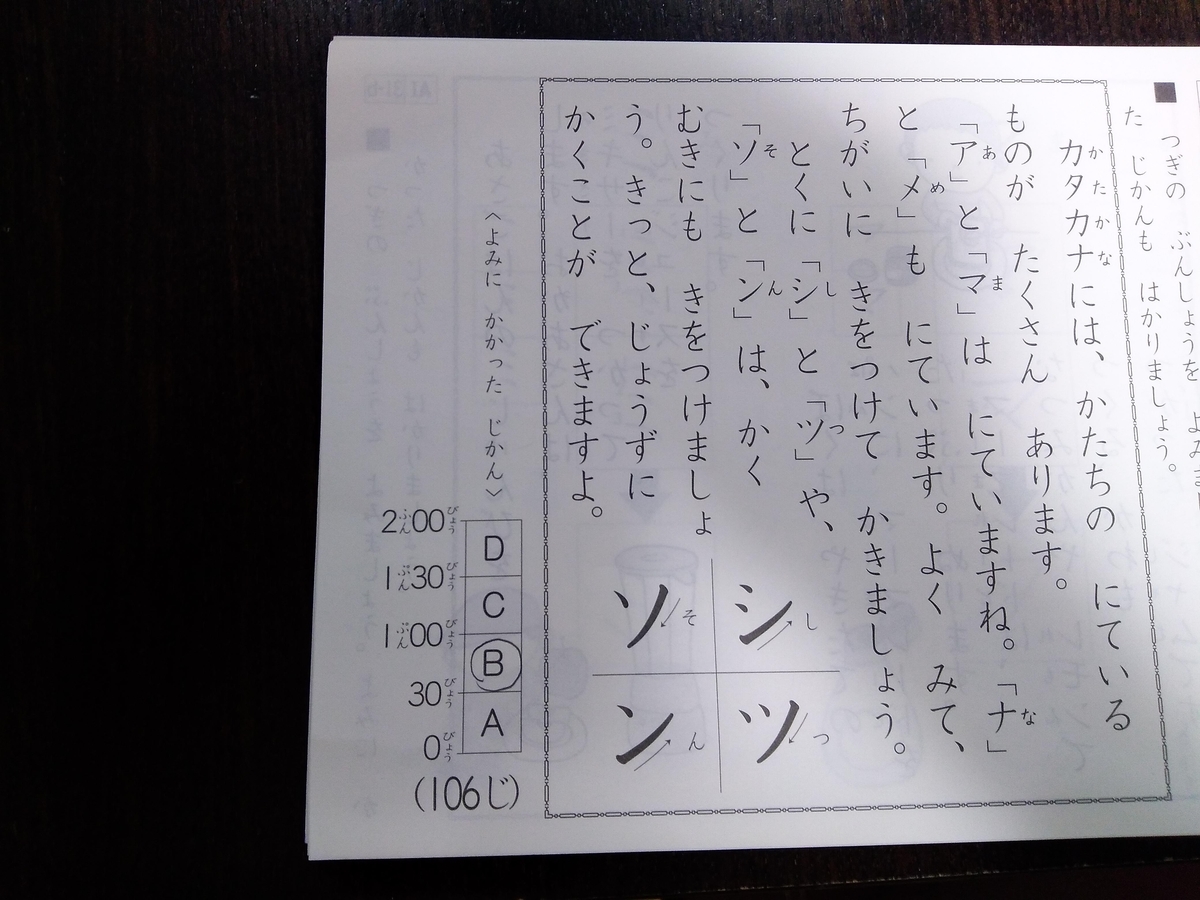 つぎの ぶんしょうを よみま
た じかんも はかりましょう。
カタカナには、かたちの にている
ものが たくさん あります。
「ア」と「マ」は にていますね。「ナ」
と 「メ」も にています。よく みて、
ちがいに きをつけて かきましょう。
とくに 「シ」と 「ツ」や、
「ソ」と 「ン」は、かく
むきにも きをつけましょ
う。きっと、じょうずに
かくことが できますよ。
シ し
ツ つ
ソ そ
ン ん
〈よみに かかった じかん〉
2ぷん00びょう
D
1ぷん30びょう
C
1ぷん00びょう
B
30びょう
A
0びょう
(106じ)